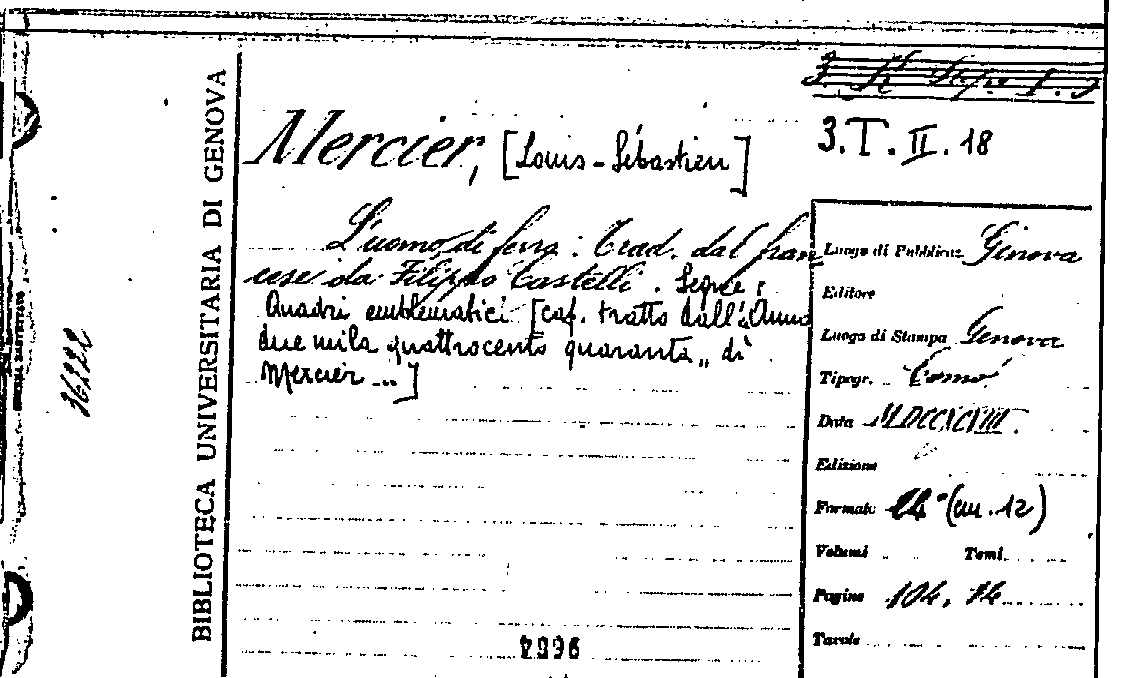 BIBLIOTECA UNIVERSITARIA DI GENOVA
36222
3.T.II.18
Mercier, [Louis-Sébastien]
L'uomo di ferro: Trad. dal fran
cese da Filippo Castelli. Segue:
Quadri emblematici [cap. tratto dall'„Anno
due mila quattrocento quaranta„ di
Mercier ...]
Luogo di Pubblicaz. Genova
Editore
Luogo di Stampa Genova
Tipogr. Comó
Data MDCCXCVIII.
Edizione
Formato (in.12)
Volumi Tomi
Pagine 104, 14
Tavole